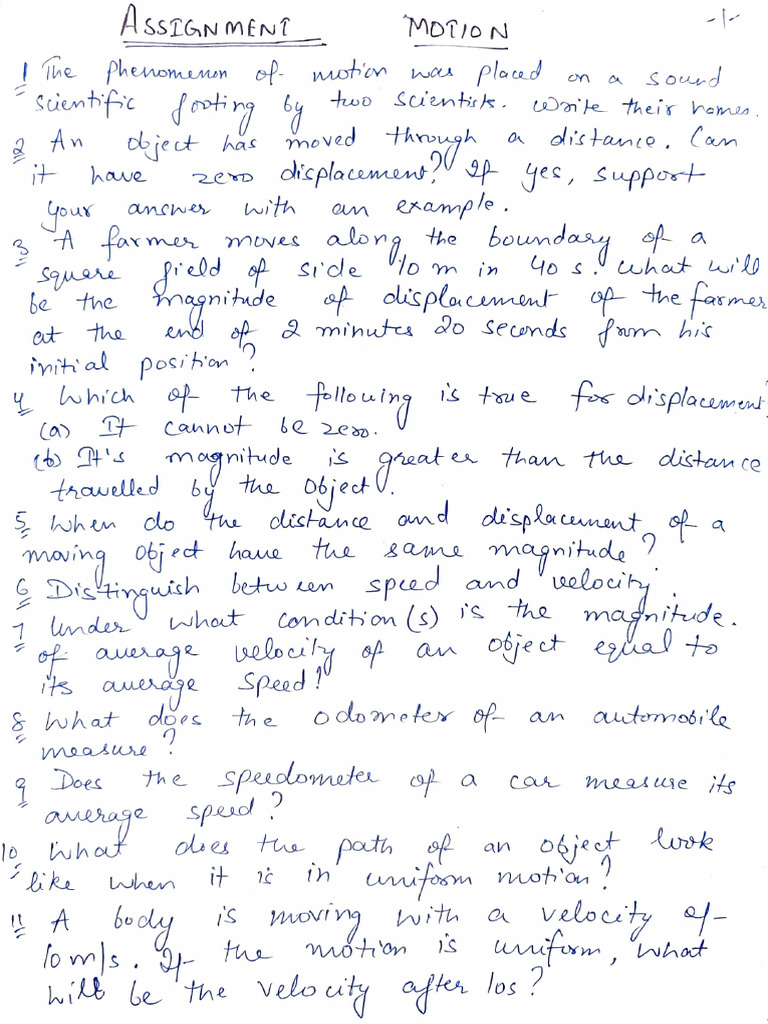 ASSIGNMENT MOTION -1-
1 The phenomenon of motion was placed on a sound
scientific footing by two scientists. Write their names.
2 An object has moved through a distance. Can
it have zero displacement? If yes, support
your answer with an example.
3 A farmer moves along the boundary of a
square field of side 10 m in 40 s. What will
be the magnitude of displacement of the farmer
at the end of 2 minutes 20 seconds from his
initial position?
4 Which of the following is true for displacement
(a) It cannot be zero.
(b) It's magnitude is greater than the distance
travelled by the object.
5 When do the distance and displacement of a
moving object have the same magnitude?
6 Distinguish between speed and velocity.
7 Under what condition(s) is the magnitude.
of average velocity of an object equal to
its average speed?
8 What does the odometer of an automobile
measure?
9 Does the speedometer of a car measure its
average speed?
10 What does the path of an object look
like when it is in uniform motion?
11 A body is moving with a velocity of
10 m/s. If the motion is uniform, what
will be the velocity after 10s?